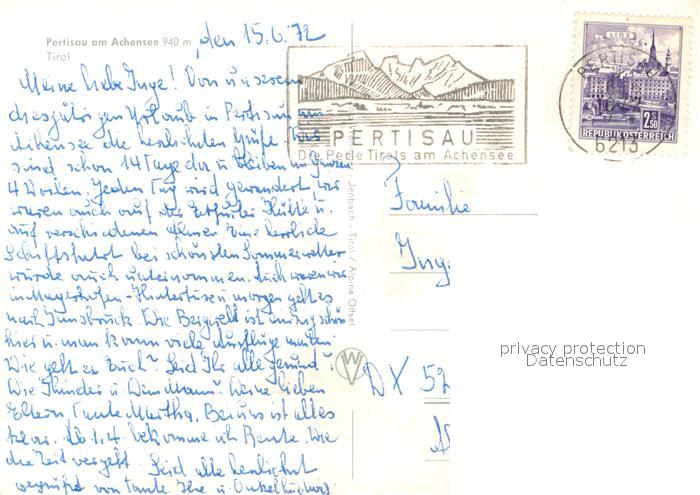 Pertisau am Achensee 940 m
Tirol
den 15.6.72
Meine liebe Inge! Von unserem
diesjährigen Urlaub in Pertisau am
Achensee die herzlichsten Grüße. Wir
sind schon 14 Tage da u. bleiben im Ganzen
4 Wochen. Jeden Tag wird gewandert, wir
waren auch auf der Erfurter Hütte u.
auf verschiedenen Almen. Eine herrliche
Schiffsfahrt bei schönsten Sommerwetter
wurde auch unternommen. Auch waren wir
in Mayerhofen - Hintertux u. morgen geht es
nach Innsbruck. Die Bergwelt ist einzig schön
hier u. man kann viele Ausflüge machen.
Wie geht es Euch? Seid Ihr alle gesund?
Die Kinder u. Dein Mann? Deine lieben
Eltern, Tante Martha. Bei uns ist alles
klar. Ab 1.4. bekomme ich Rente. Wie
die Zeit vergeht. Seid alle herzlichst
gegrüßt von Tante u. Onkel
Jenbach - Tirol / Alpina Offset
PERTISAU
Die Perle Tirols am Achensee
PERTISAU
6213
LINZ
2.50
REPUBLIK ÖSTERREICH
Familie
Ing
DX 52
W
privacy protection
Datenschutz